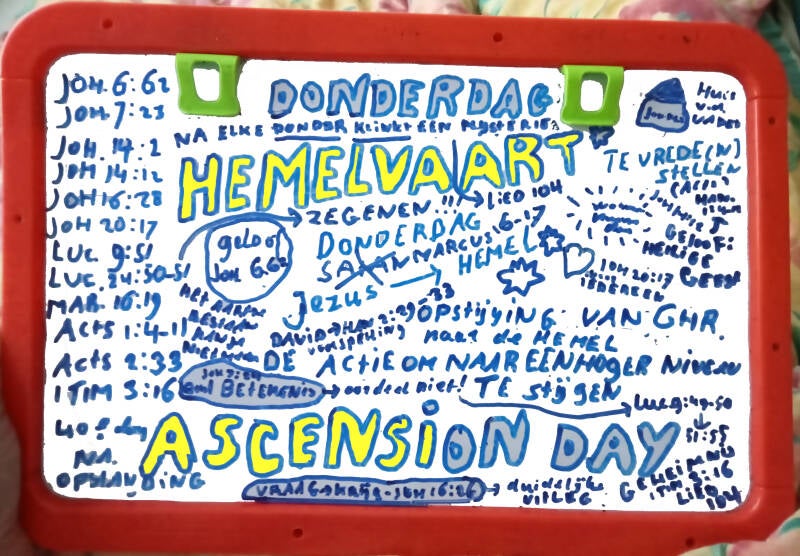 JOH. 6:62
JOH. 7:23
JOH. 14:2
JOH 14:12
JOH 16:28
JOH 20:17
LUC 9:51
LUC. 24:50-51
MAR. 16:19
ACTS 1:4-11
ACTS 2:33
1 TIM 3:16
40e dag
NA
OPSTANDING
DONDERDAG
NA ELKE DONDER KLINKT EEN MYSTERIE
HEMELVAART
ZEGENEN!!!
LIED 104
geloof
JOH 6:62
DONDERDAG
SATAN MARCUS 16-17
Jezus
HEMEL
HUIS
V.D.
VADER
TE VREDE(N)
STELLEN
GELOOF:
HEILIGE
GEEST
JOH 20:17
IEDEREEN
HET AARDSE
BESTAAN
DAVID → HAN 2:29-33
VOORSPELLING
OPSTIJGING VAN CHR.
naar de HEMEL
DE ACTIE OM NAAR EEN HOGER NIVEAU
TE STIJGEN
BETEKENIS
oordeel niet!
LUC 9:49-50
51-55
ASCENSION DAY
VRAAG + KRIJG - JOH 16:26
duidelijke
UITLEG
GEHEIMNIS
1 TIM 3:16
LIED
104